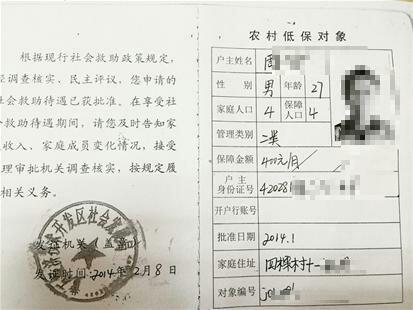 根据现行社会救助政策规定,
经调查核实、民主评议,您申请的
社会救助待遇已获批准。在享受社
会救助待遇期间,请您及时告知家
庭收入、家庭成员变化情况,接受
理审批机关调查核实,按规定履
相关义务。
开发区社会发
发证机关(盖章)
发证时间:2014年2月8日
农村低保对象
户主姓名 周
性 别 男 年龄 27
家庭人口 4 保障人口 4
管理类别 二类
保障金额 400元/月
户主身份证号 420281
开户行账号
批准日期 2014.1
家庭住址 四棵村十一
对象编号